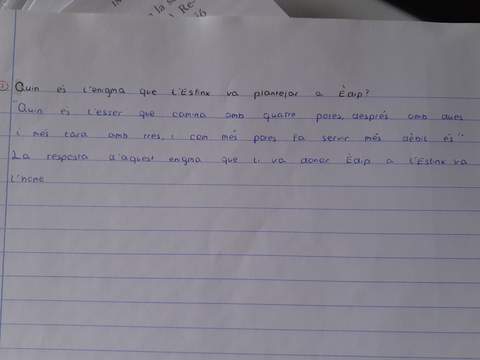 la s
. Re-
ió
Quin és l'enigma que l'Esfinx va plantejar a Èdip?
"Quin és l'ésser que camina amb quatre potes, després amb dues
i més tard amb tres, i com més potes fa servir més dèbil és"
La resposta d'aquest enigma que li va donar Èdip a l'Esfinx va
l'home